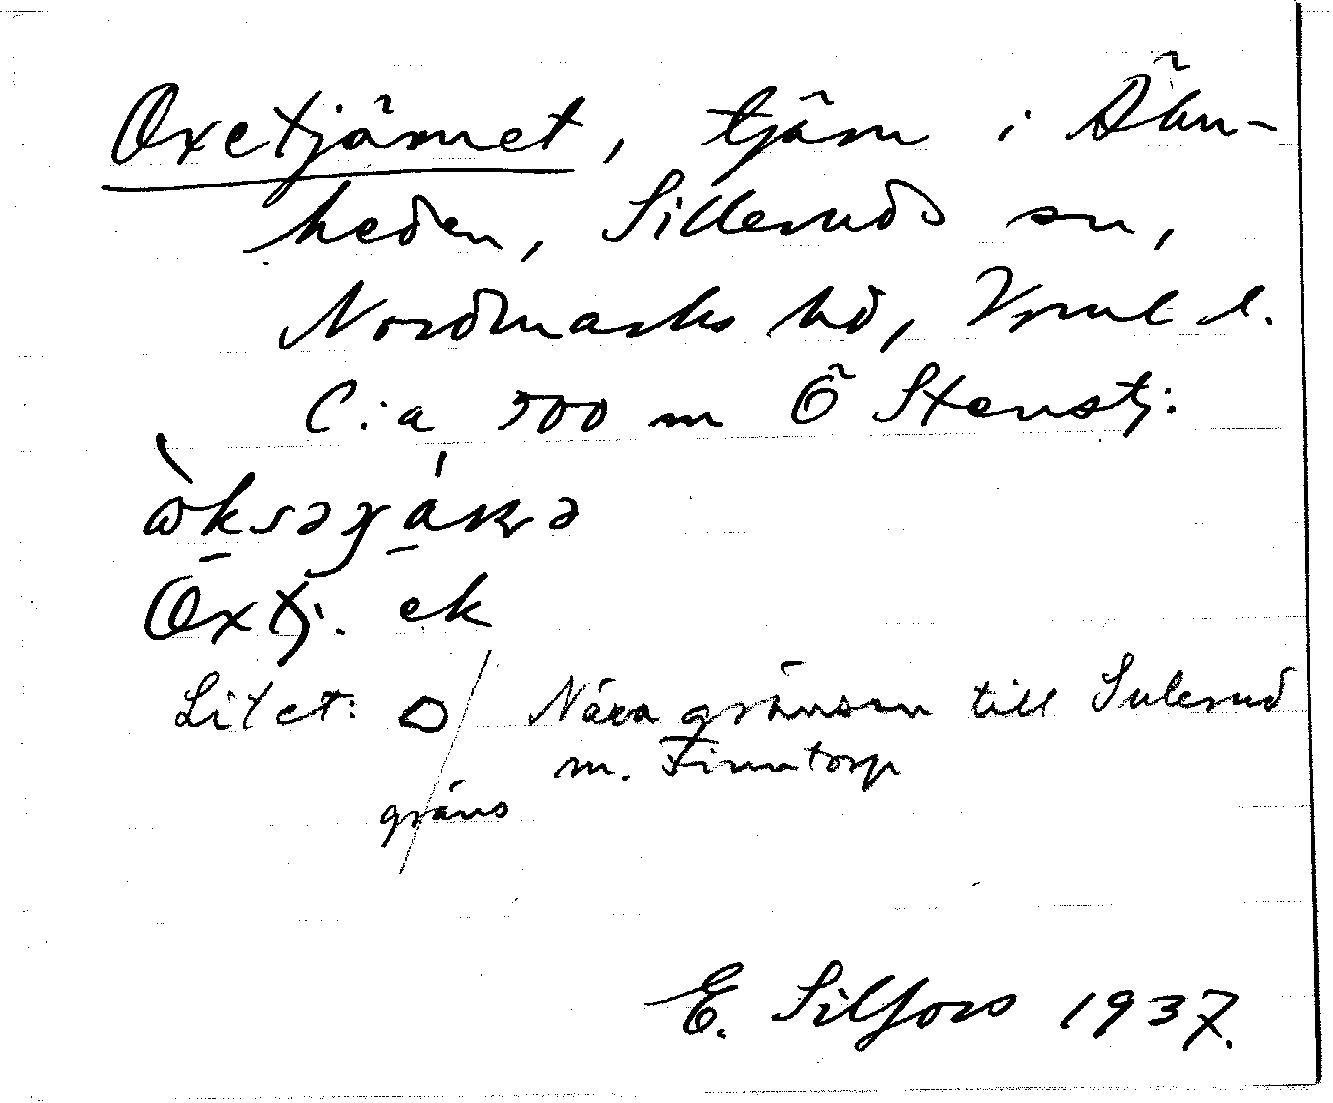 Oxetjärnet, tjärn i Ån-
heden, Silleruds sn,
Nordmarks hd, Vrml l.
C:a 500 m Ö Stenstj:
Oxtj. ek
Litet: Nära gränsen till Sulerud
m. Finntorp
gräns
E. Silfors 1937.